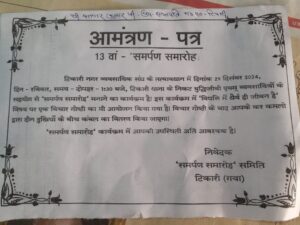 आमंत्रण - पत्र
13 वां - 'समर्पण समारोह'
टिकारी नगर व्यवसायिक संघ के तत्वाधान में दिनांक 29 दिसम्बर 2024,
दिन - रविवार, समय - दोपहर - 1:30 बजे, टिकारी थाना के निकट बुद्धिजीवी एवम् व्यवसायियों के
सहयोग से 'समर्पण समारोह' मनाने का कार्यक्रम है। इस कार्यक्रम में "विपत्ति में धैर्य ही जीवन है"
विषय पर एक विचार गोष्ठी का भी आयोजन किया गया है। विचार गोष्ठी के बाद आपके कर कमलों
द्वारा दीन दुखियों के बीच कंबल का वितरण किया जाएगा।
'समर्पण समारोह' कार्यक्रम में आपकी उपस्थिति अति आवश्यक है।
निवेदक
'समर्पण समारोह' समिति
टिकारी (गया)